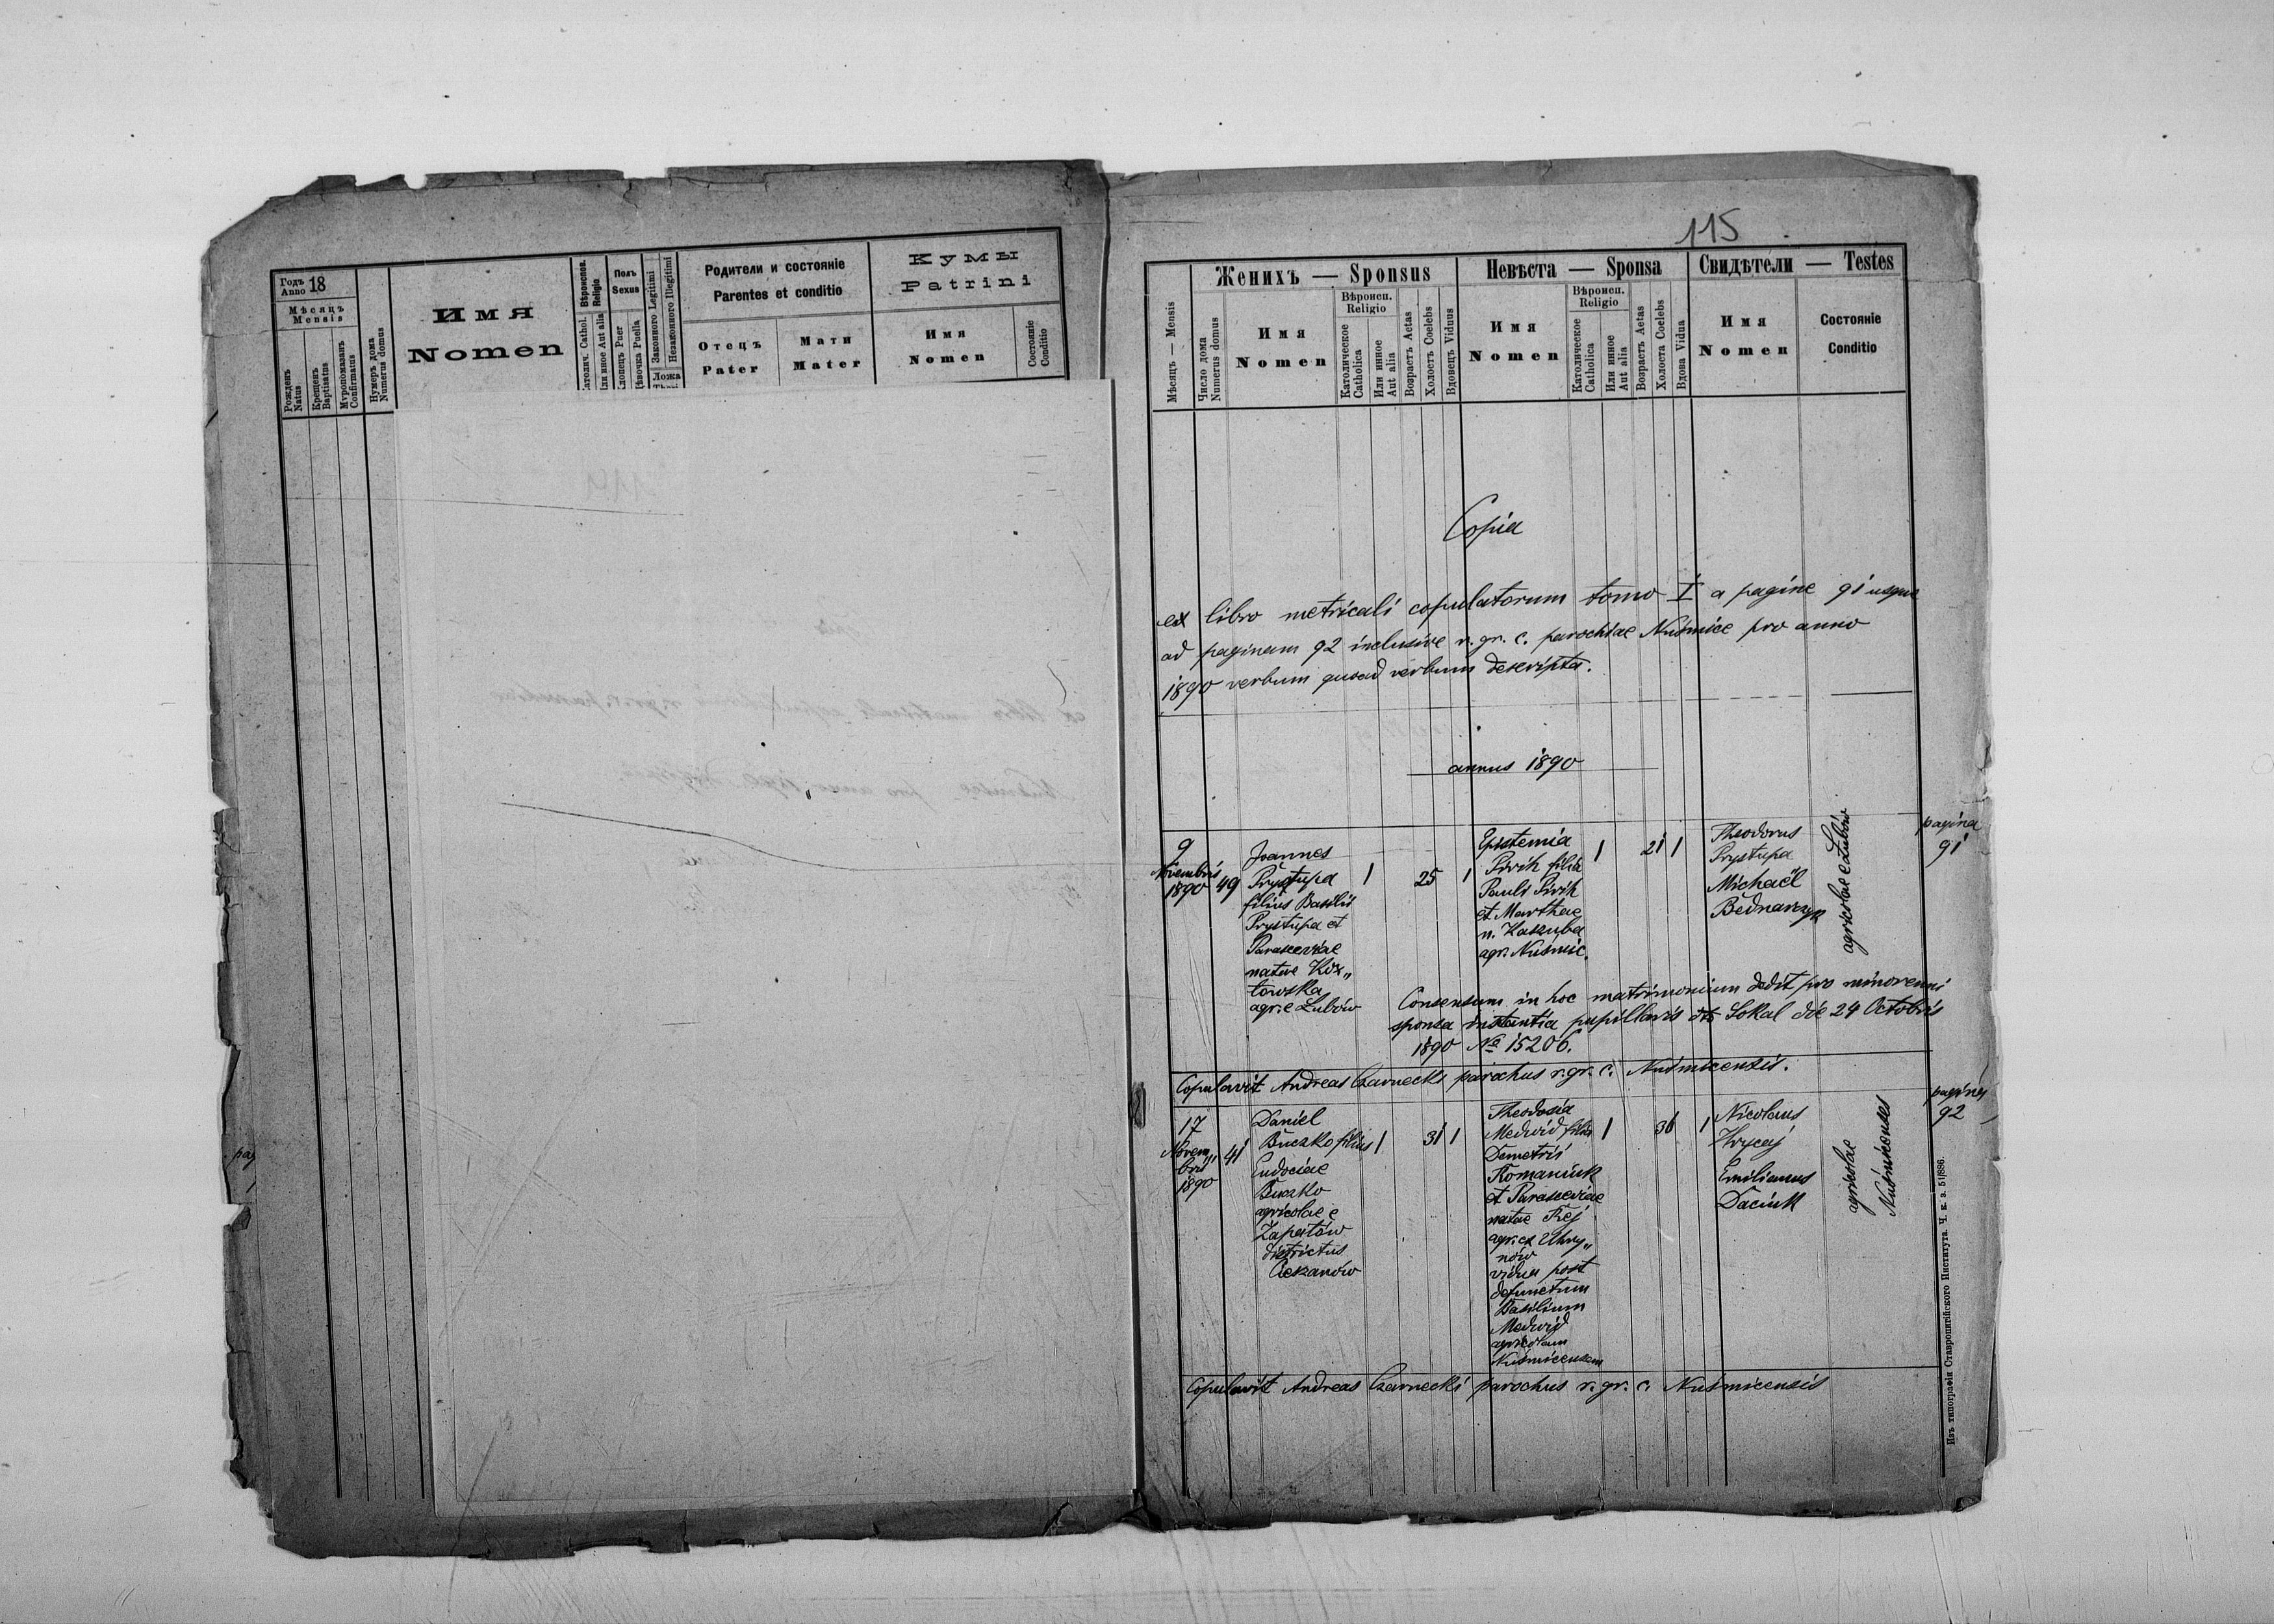 Годъ
Anno 18
Мѣсяцъ
Mensis
Рожденъ
Natus
Крещенъ
Baptisatus
Муропомазанъ
Confirmatus
Нумеръ дома
Numerus domus
Имя
Nomen
Вѣроиспов.
Religio
Католич. Cathol.
Или иное Aut alia
Полъ
Sexus
Хлопецъ Puer
Дѣвочка Puella
Законного Legitimi
Незаконного Illegitimi
Ложа
Родители и состояніе
Parentes et conditio
Отецъ
Pater
Мати
Mater
Кумы
Patrini
Имя
Nomen
Состояніе
Conditio
115
Мѣсяцъ — Mensis
Число дома
Numerus domus
Женихъ — Sponsus
Имя
Nomen
Вѣроисп.
Religio
Католическое
Catholica
Или инное
Aut alia
Возрастъ Aetas
Холостъ Coelebs
Вдовецъ Viduus
Невѣста — Sponsa
Имя
Nomen
Вѣроисп.
Religio
Католическое
Catholica
Или инное
Aut alia
Возрастъ Aetas
Холоста Coelebs
Вдова Vidua
Свидѣтели — Testes
Имя
Nomen
Состояніе
Conditio
Copia
ex libro metricali copulatorum tomo I a pagine 91 usque
ad paginam 92 inclusive r. gr. c. parochiae Nuśmice pro anno
1890 verbum quoad verbum descripta.
annus 1890
9
Novembris
1890
49
Joannes
Prystupa
filius Basilii
Prystupa et
Parasceviae
natae Koz„
towska
agr. e Lubów
1
25
1
Epistemia
Pivih filia
Pauli Pivih
et Marthae
n. Kaszuba
agr. Nuśmic.
1
21
1
Theodorus
Prystupa
Michaël
Bednarczyk
agricolae e Lubów
pagina
91
Consensum in hoc matrimonium dedit pro minorenni
sponsa instantia pupillaris dto Sokal die 24 Octobris
1890 No 15206.
Copulavit Andreas Czarnecki parochus r. gr. c. Nuśmicensis.
17
Novem„
bris
1890
41
Daniel
Buczko filius
Eudociae
Buczko
agricolae e
Zapatów
districtus
Cieszanów
1
31
1
Theodosia
Medwid filia
Demetrii
Romaniuk
et Parasceviae
natae Rej
agr. ex Uhry„
nów
vidua post
defunctum
Basilium
Medwid
agricolam
Nuśmicensem
1
36
1
Nicolaus
Hrycaj
Emilianus
Daciuk
agricolae
Nuśmicenses
pagina
92
Copulavit Andreas Czarnecki parochus r. gr. c. Nuśmicensis
Изъ типографіи Ставропигійского Института. Ч. к. а. 51/886.
pag